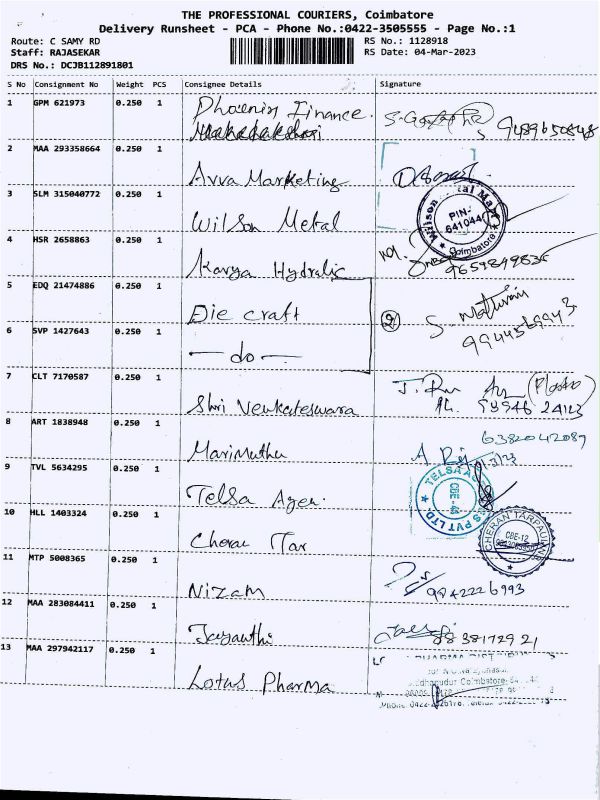 THE PROFESSIONAL COURIERS, Coimbatore
Delivery Runsheet - PCA - Phone No.:0422-3505555 - Page No.:1
Route: C SAMY RD
Staff: RAJASEKAR
DRS No.: DCJB112891801
RS No.: 1128918
RS Date: 04-Mar-2023
S No Consignment No Weight PCS Consignee Details Signature
1 GPM 621973 0.250 1 Phoenix Finance.
9489650848
2 MAA 293358664 0.250 1 Avva Marketing
3 SLM 315040772 0.250 1 Wilson Metal
PIN- 641044 Coimbatore
4 HSR 2658863 0.250 1 Kavya Hydralic
9659849836
5 EDQ 21474886 0.250 1 Die craft
② S. Mathivani
9944569943
6 SVP 1427643 0.250 1 - do -
7 CLT 7170587 0.250 1 Shri Venkateswara
98946 24123
8 ART 1838948 0.250 1 Marimuthu
6382042089
9 TVL 5634295 0.250 1 Telsa Ayer.
TELSA PVT LTD. CBE-44
10 HLL 1403324 0.250 1 Cheran Tar
CHERAN TARPAULIN CBE-12
11 MTP 5008365 0.250 1 Nizam
9842226993
12 MAA 283084411 0.250 1 Jayanthi
88 381729 21
13 MAA 297942117 0.250 1 Lotus Pharma
Coimbatore-